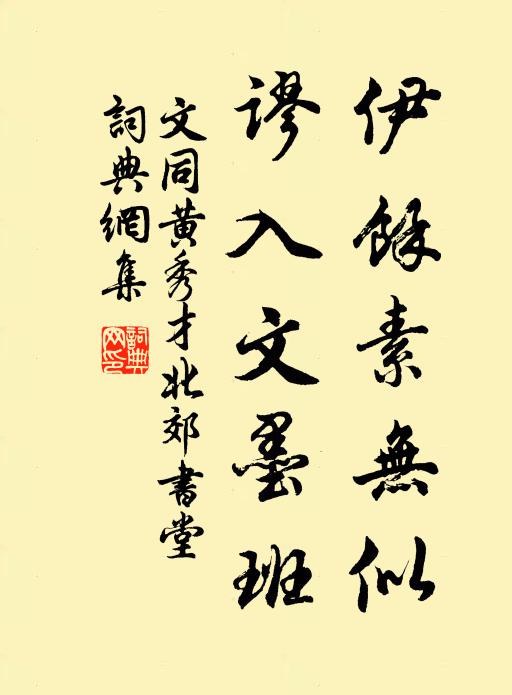 伊餘素無似
谬入文墨班
文同黄秀才北郊書堂
詞典網集
詞典網印